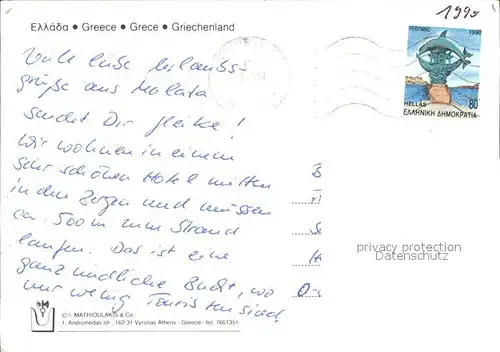 Ελλάδα ● Greece ● Grece ● Griechenland
1990
ΡΕΘΥΜΝΟ 1990
HELLAS 80
ΕΛΛΗΝΙΚΗ ΔΗΜΟΚΡΑΤΙΑ
Viele liebe Urlaubs-
grüße aus Malata
sendet Dir Heike!
Wir wohnen in einem
sehr schönen Hotel mitten
in den Bergen und müssen
ca. 500 m zum Strand
laufen. Das ist eine
ganz niedliche Bucht, wo
nur wenig Touristen sind.
privacy protection
Datenschutz
© I. MATHIOULAKIS & Co
1, Andromedas str., 162-31 Vyronas Athens - Greece - tel. 7661351